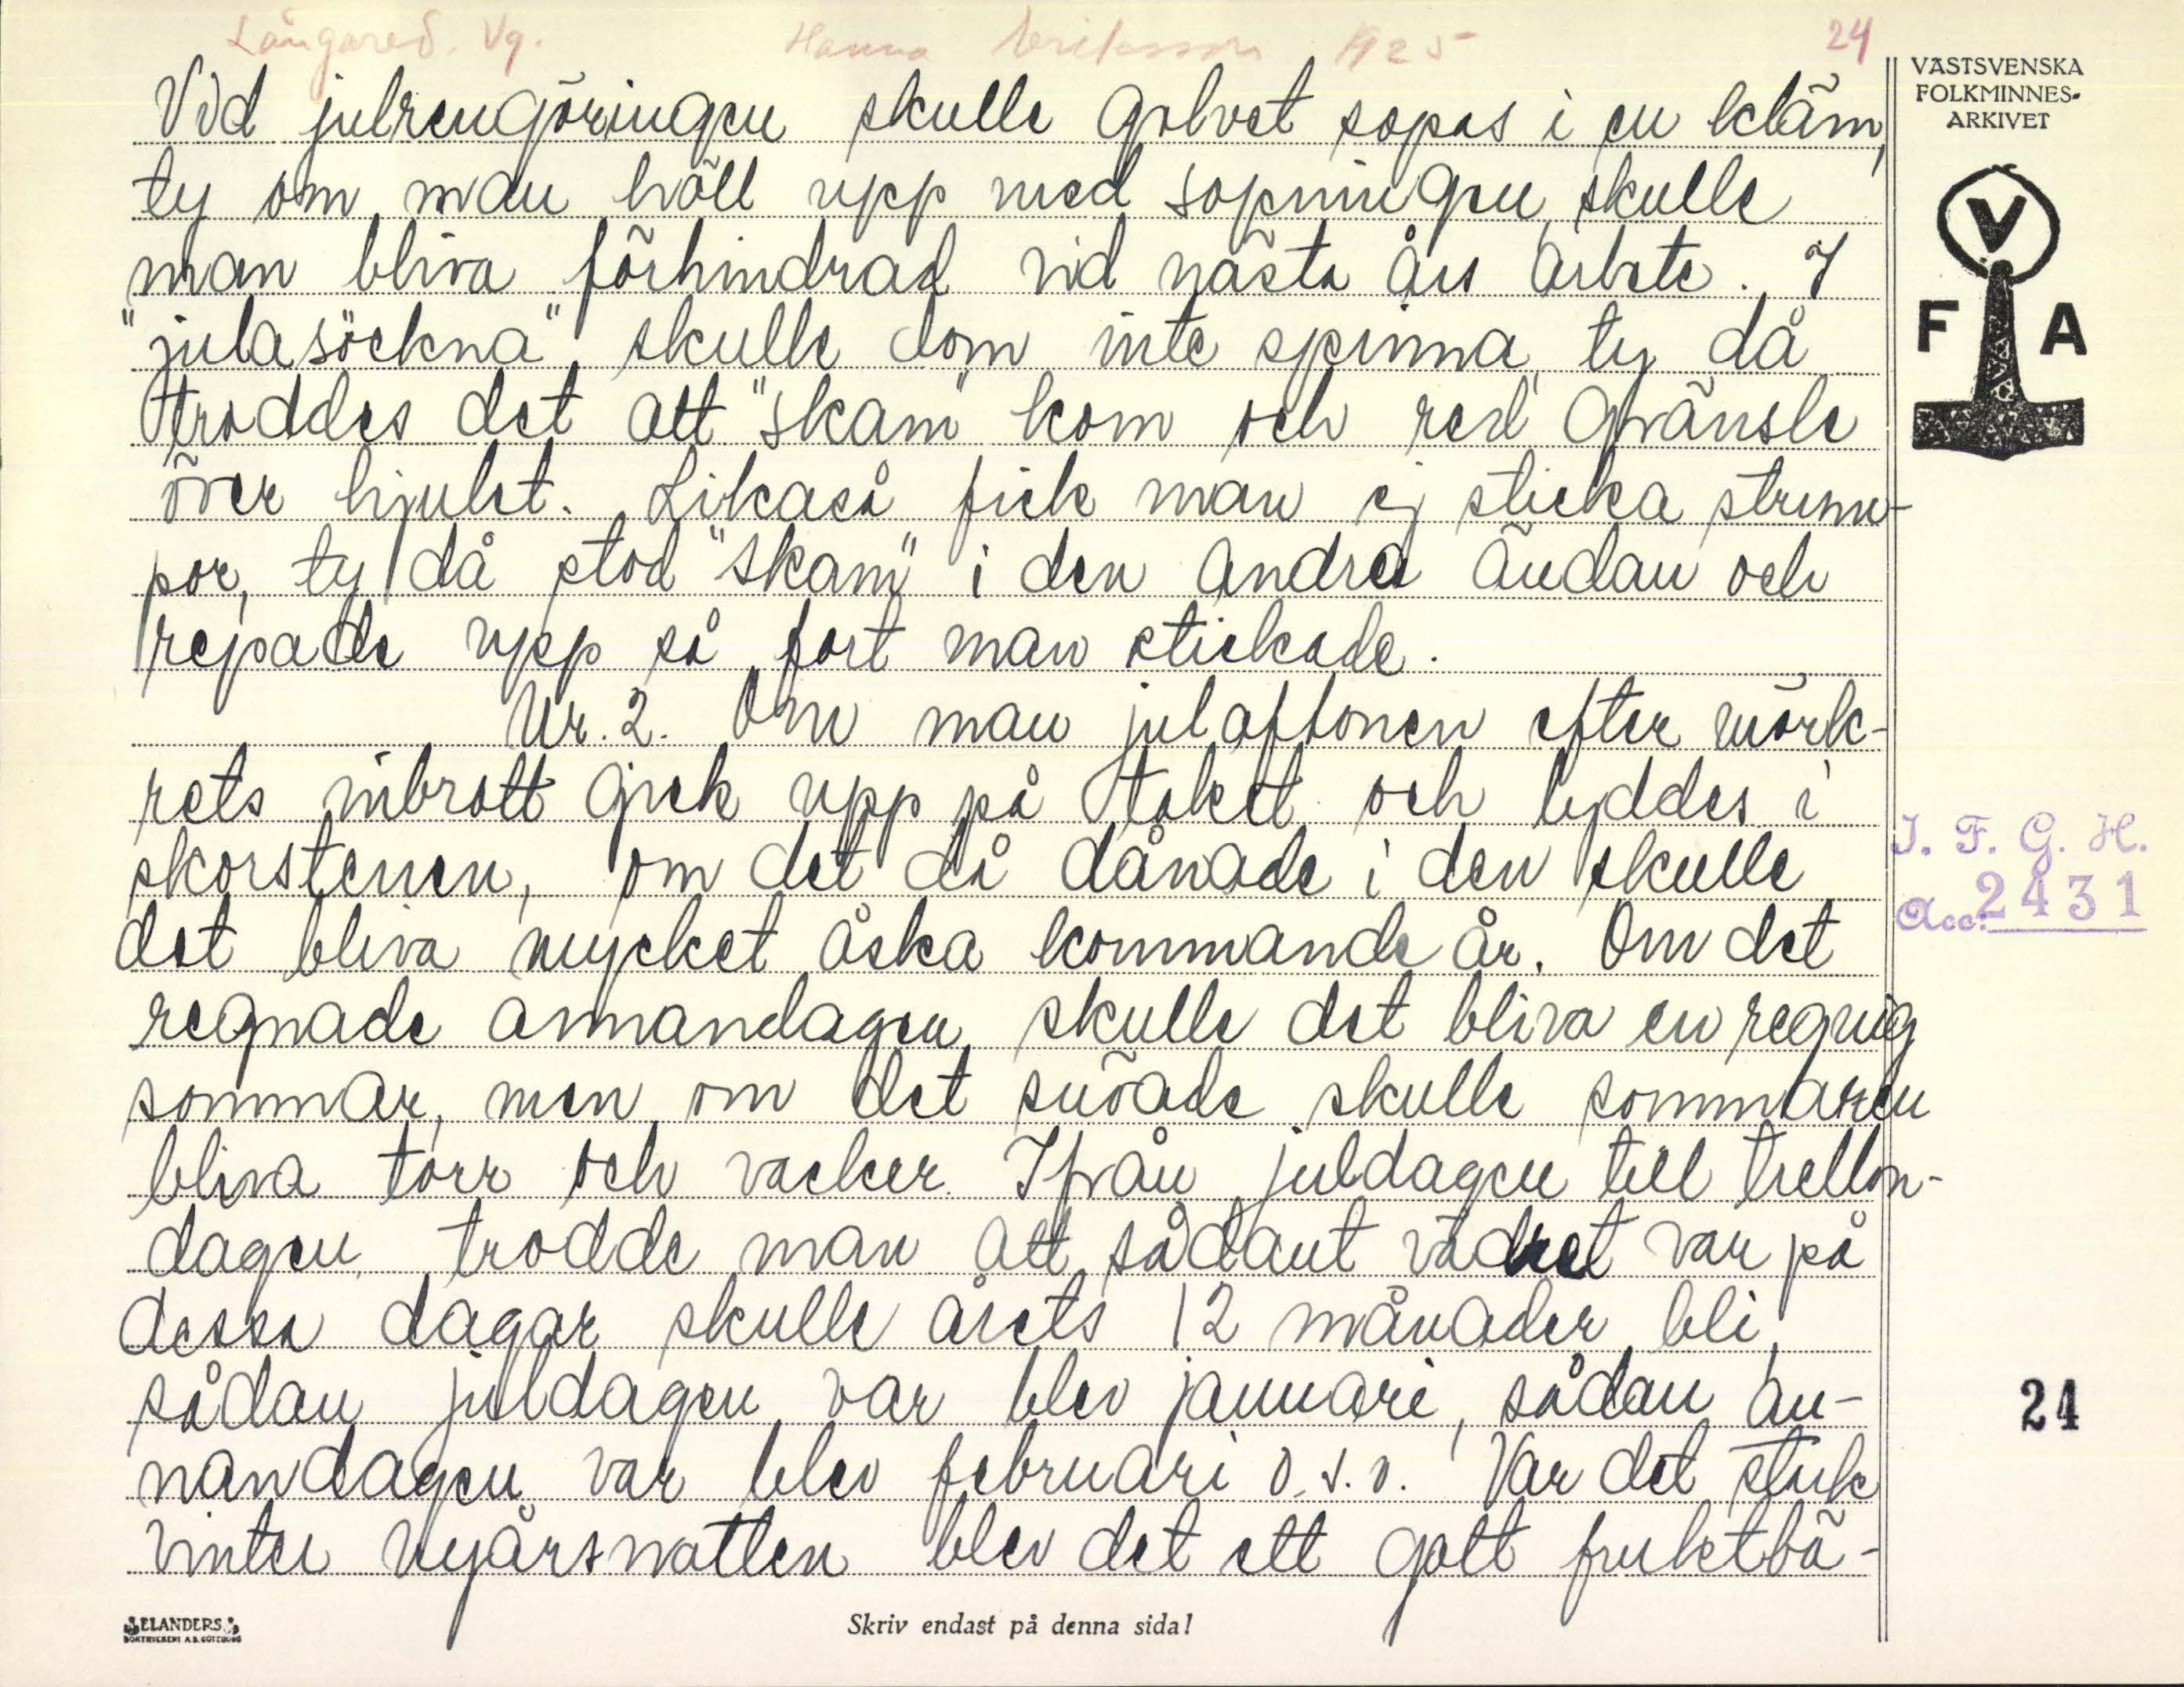 Långared. Vg. Hanna Eriksson 1925 24
VÄSTSVENSKA
FOLKMINNES-
ARKIVET
V
F A
Vid julrengöringen skulle golvet sopas i en kläm,
ty om man höll upp med sopningen, skulle
man bliva förhindrad vid nästa års arbete. I
"julasöckna" skulle dom inte spinna, ty då
troddes det att "skam" kom och red gränsle
över hjulet. Likaså fick man ej sticka strum-
por, ty då stod "skam" i den andra ändan och
repade upp så fort man stickade.
Nr. 2. Om man julaftonen efter mörk-
rets inbrott gick upp på taket och lyddes i
skorstenen, om det då dånade i den skulle
det bliva mycket åska kommande år. Om det
regnade annandagen, skulle det bliva en regnig
sommar, men om det snöade skulle sommaren
bliva torr och vacker. Ifrån juldagen till trellon-
dagen, trodde man att sådant vädret var på
dessa dagar skulle årets 12 månader bli,
sådan juldagen var blev januari, sådan an-
nandagen var blev februari o.s.v. Var det stark
vinter nyårsnatten blev det ett gott fruktbä-
I. F. G. H.
Acc. 2431
24
ELANDERS
BOKTRYCKERI A.B. GÖTEBORG
Skriv endast på denna sida!